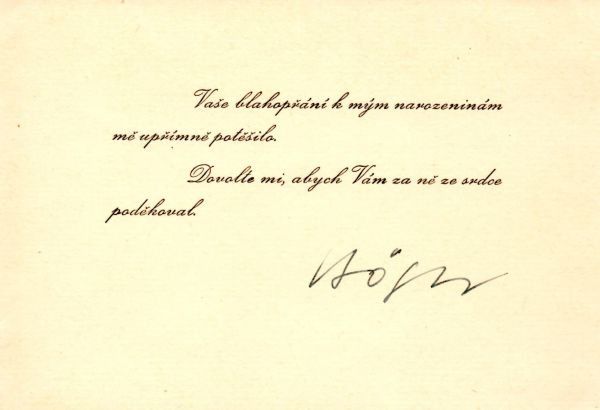 Vaše blahopřání k mým narozeninám
mě upřímně potěšilo.
Dovolte mi, abych Vám za ně ze srdce
poděkoval.
Höger